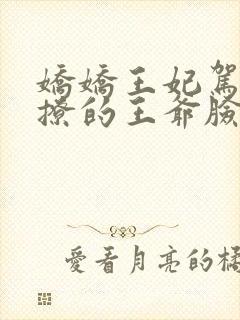 嬌嬌王妃駕
撩的王爺臉
愛看月亮的橘